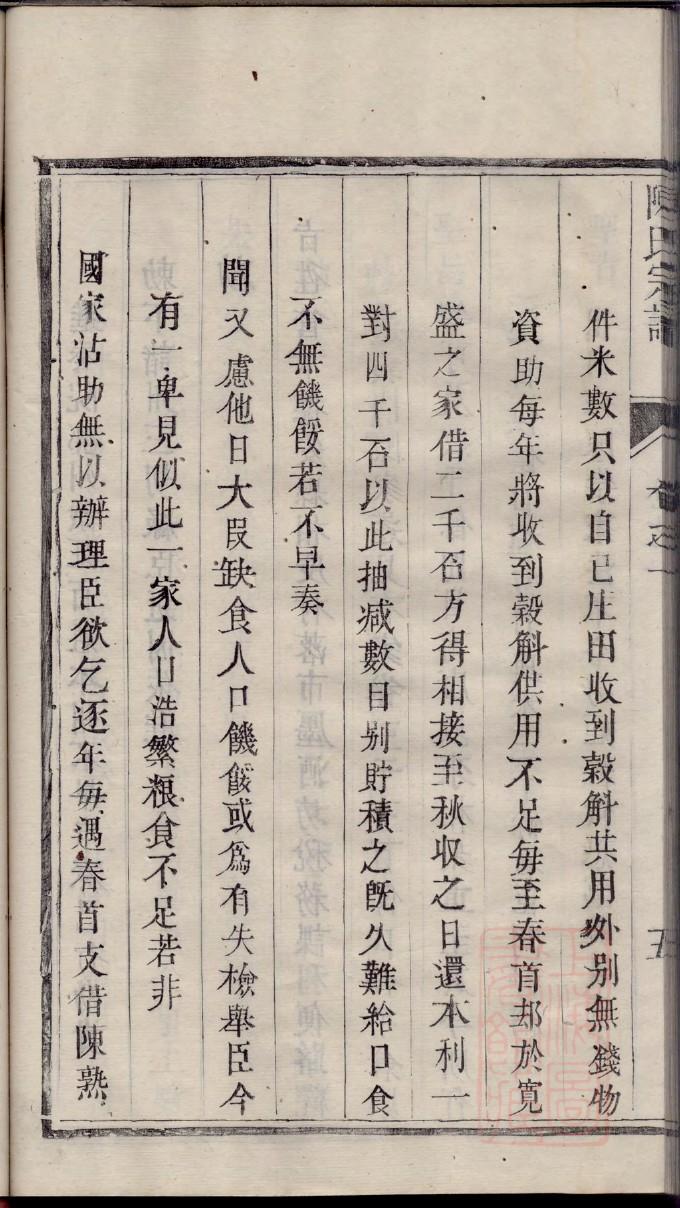 陳氏宗譜
卷之一
五
件米數只以自己庄田收到穀斛共用外別無錢物
資助每年將收到穀斛供用不足每至春首却於寬
盛之家借二千石方得相接至秋收之日還本利一
對四千石以此抽减數目别貯積之旣久難給口食
不無饑餒若不早奏
聞又慮他日大段缺食人口饑餒或爲有失檢舉臣今
有一卑見似此一家人口浩繁粮食不足若非
國家沾助無以辦理臣欲乞逐年每遇春首支借陳熟